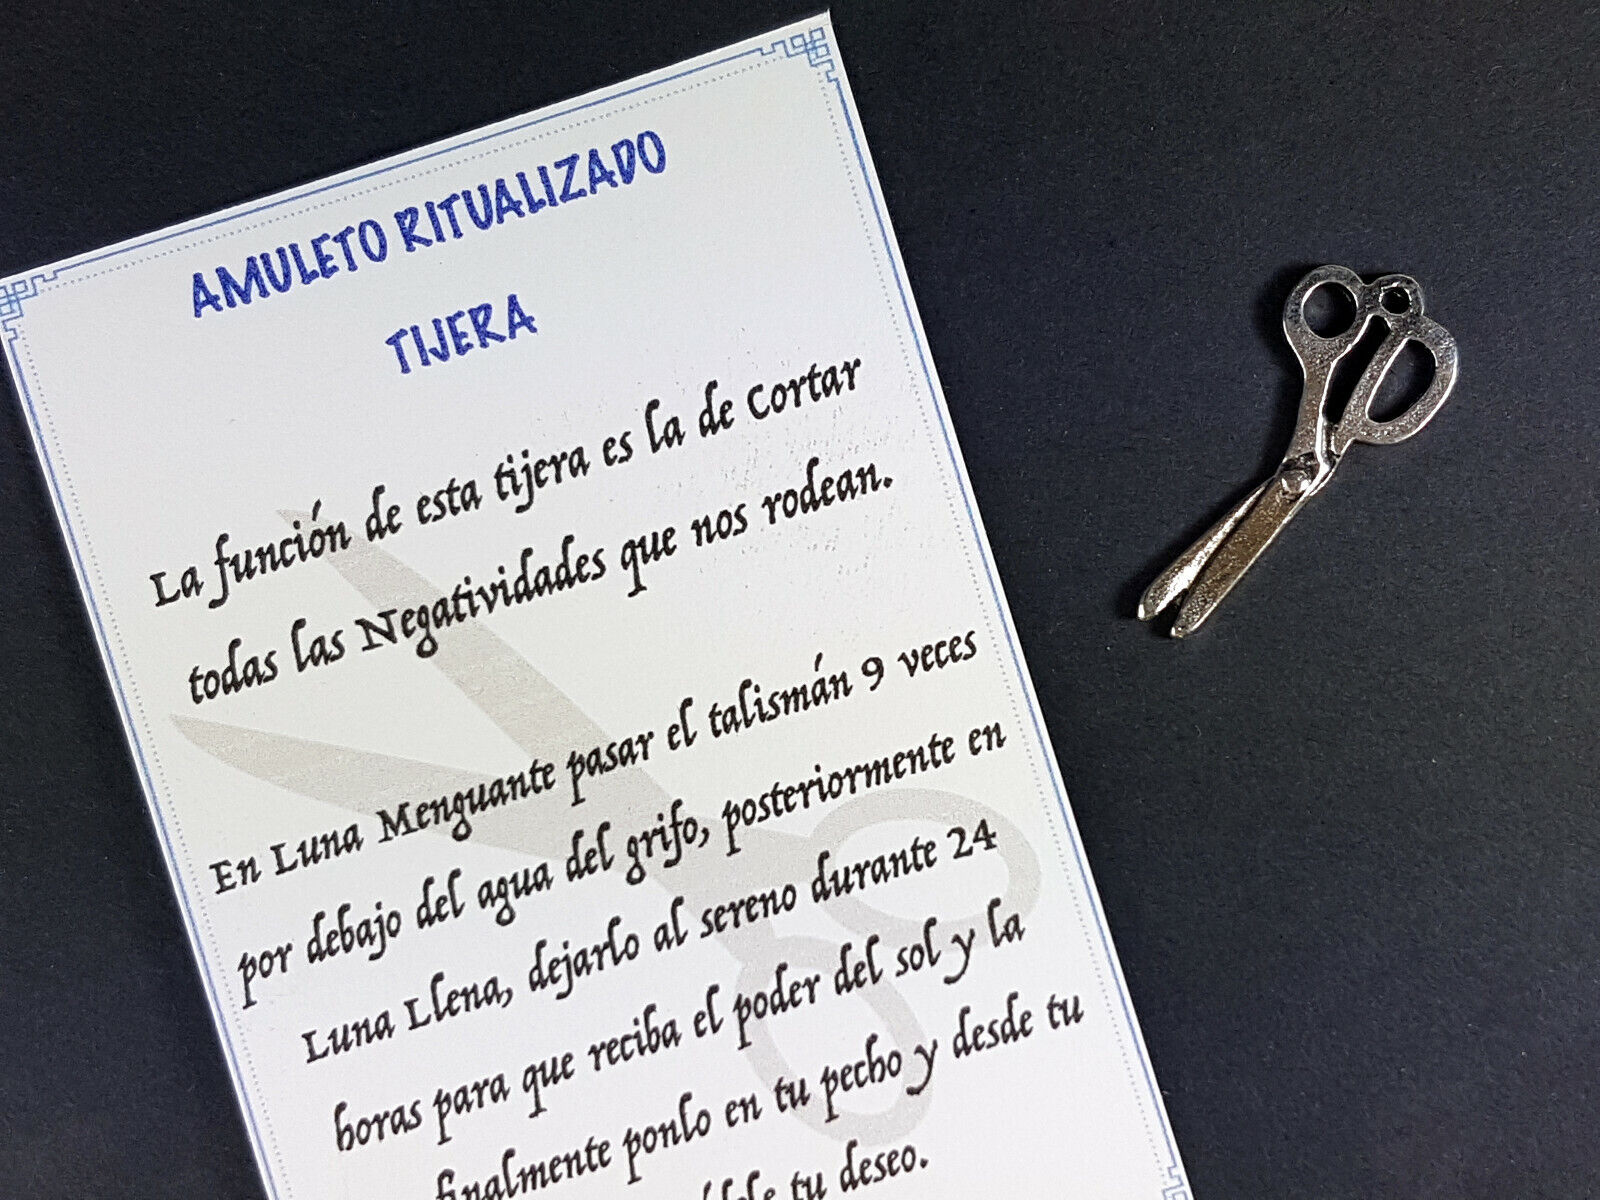 AMULETO RITUALIZADO
TIJERA
La función de esta tijera es la de Cortar
todas las Negatividades que nos rodean.
En Luna Menguante pasar el talismán 9 veces
por debajo del agua del grifo, posteriormente en
Luna Llena, dejarlo al sereno durante 24
horas para que reciba el poder del sol y la
finalmente ponlo en tu pecho y desde tu
tu deseo.